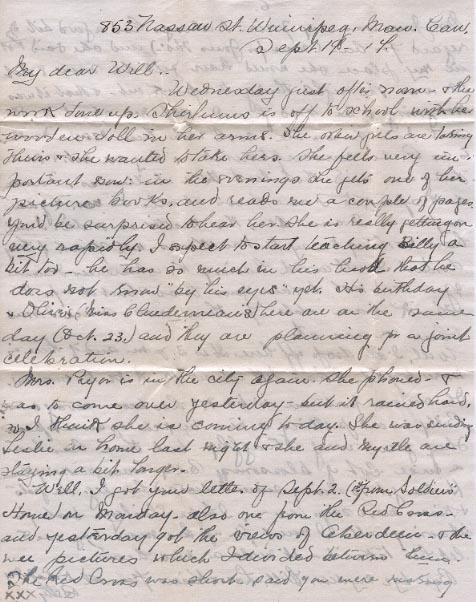 853 Nassau St. Winnipeg, Man. Can.
Sept 18 - 18.
My dear Will..
Wednesday just after noon & the
work done up. is off to school with her
wooden doll in her arms. The other girls are taking
theirs & she wanted to take hers. She feels very im-
portant now: in the evenings she gets one of her
picture books, and reads me a couple of pages.
You'd be surprised to hear her. She is really getting on
very rapidly. I expect to start teaching Billy a
bit too - he has so much in his head that he
does not know "by his eyes" yet. His birthday
& Olive's (Miss here are on the same
day (Oct. 23.) and they are planning for a joint
celebration.
Mrs. Pryor is in the city again. She phoned - &
was to come over yesterday - but it rained hard,
so I think she is coming to day. She was sending
Leslie home last night & she and Myrtle are
staying a bit longer.
Will, I got your letter of Sept. 2. (from Soldiers'
Home) on Monday - also one from the Red Cross -
and yesterday got the views of Aberdeen - & the
wee pictures which I divided between
The Red Cross was short said you were
xxx